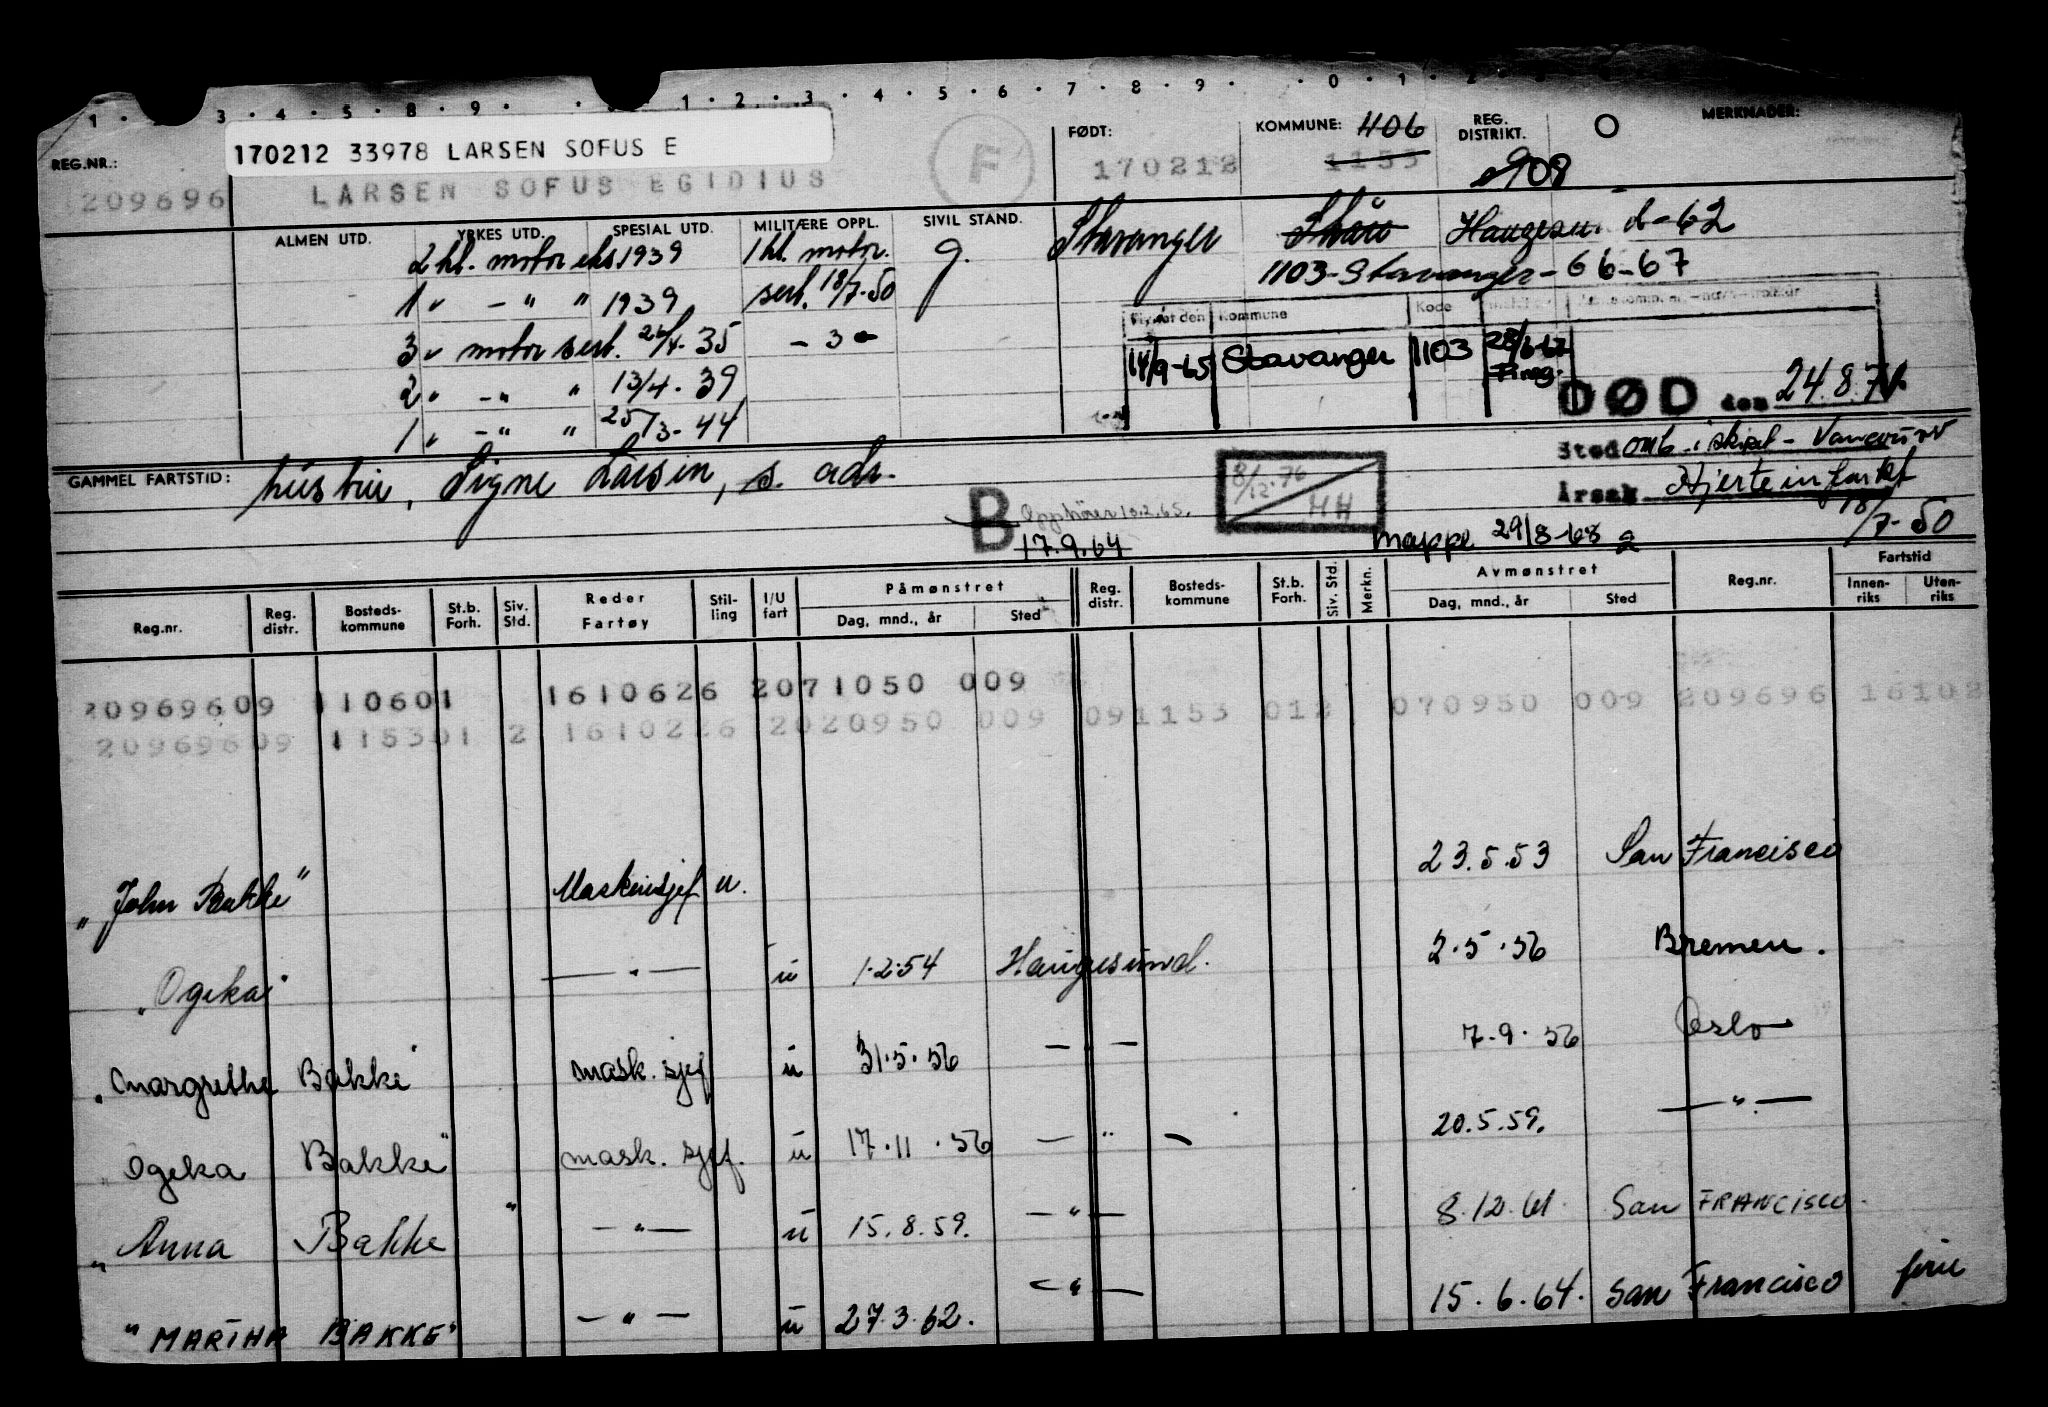 1 · 3 · 4 · 5 · 8 · 9 · · 1 · 2 · 3 · 4 · 5 · 6 · 7 · 8 · 9 · · 0 · 1 · 2
REG.NR.: 170212 33978 LARSEN SOFUS E FØDT: KOMMUNE: 1106 REG. DISTRIKT. O MERKNADER:
209696 LARSEN SOFUS EGIDIUS F 170212 1153 908
ALMEN UTD. YRKES UTD. SPESIAL UTD. MILITÆRE OPPL. SIVIL STAND. Stavanger Skåre Haugesund d-62
2 kl. motor eks 1939 1 kl. motor. g. 1103-Stavanger-66-67
1 " - " " 1939 sert. 18/7-50
Flyttet den Kommune Kode
3 " motor sert. 26/4. 35 - 3 - 14/9-65 Stavanger 1103 28/6-67 F.reg.
2 " - " " 13/4. 39 DØD den 24.8.71
1 " - " " 25/3-44
Sted omb. i skipet - Vancouver
GAMMEL FARTSTID: hustru, Signe Larsen, s. adr. 8/12.76 HH Årsak Hjerteinfarkt
B Opphører 10.2.65. 18/7-50
17.9.64 mappe 29/8-68
Reg.nr. Reg. distr. Bosteds-kommune St.b. Forh. Siv. Std. Reder Fartøy Stil-ling I/U fart Påmønstret Dag, mnd., år Sted Reg. distr. Bosteds-kommune St.b. Forh. Siv. Std. Merkn. Avmønstret Dag, mnd., år Sted Reg.nr. Fartstid Innen-riks Uten-riks
20969609 110601 1610626 2071050 009
20969609 115301 2 1610226 2020950 009 091153 012 070950 009 209696 16102
"John Bakke" Maskinsjef u. 23.5.53 San Francisco
"Ogeka" — " — u 1.2.54 Haugesund. 2.5.56 Bremen.
"Margrethe Bakke" mask. sjef u 31.5.56 — " — 7.9.56 Oslo
"Ogeka Bakke" mask. sjef. u 17.11.56 — " — 20.5.59. — " —
"Anna Bakke" — " — u 15.8.59. — " — 8.12.61. San FRANCISCO.
"MARTHA BAKKE" — " — u 27.3.62. — " — 15.6.64. San Francisco ferie